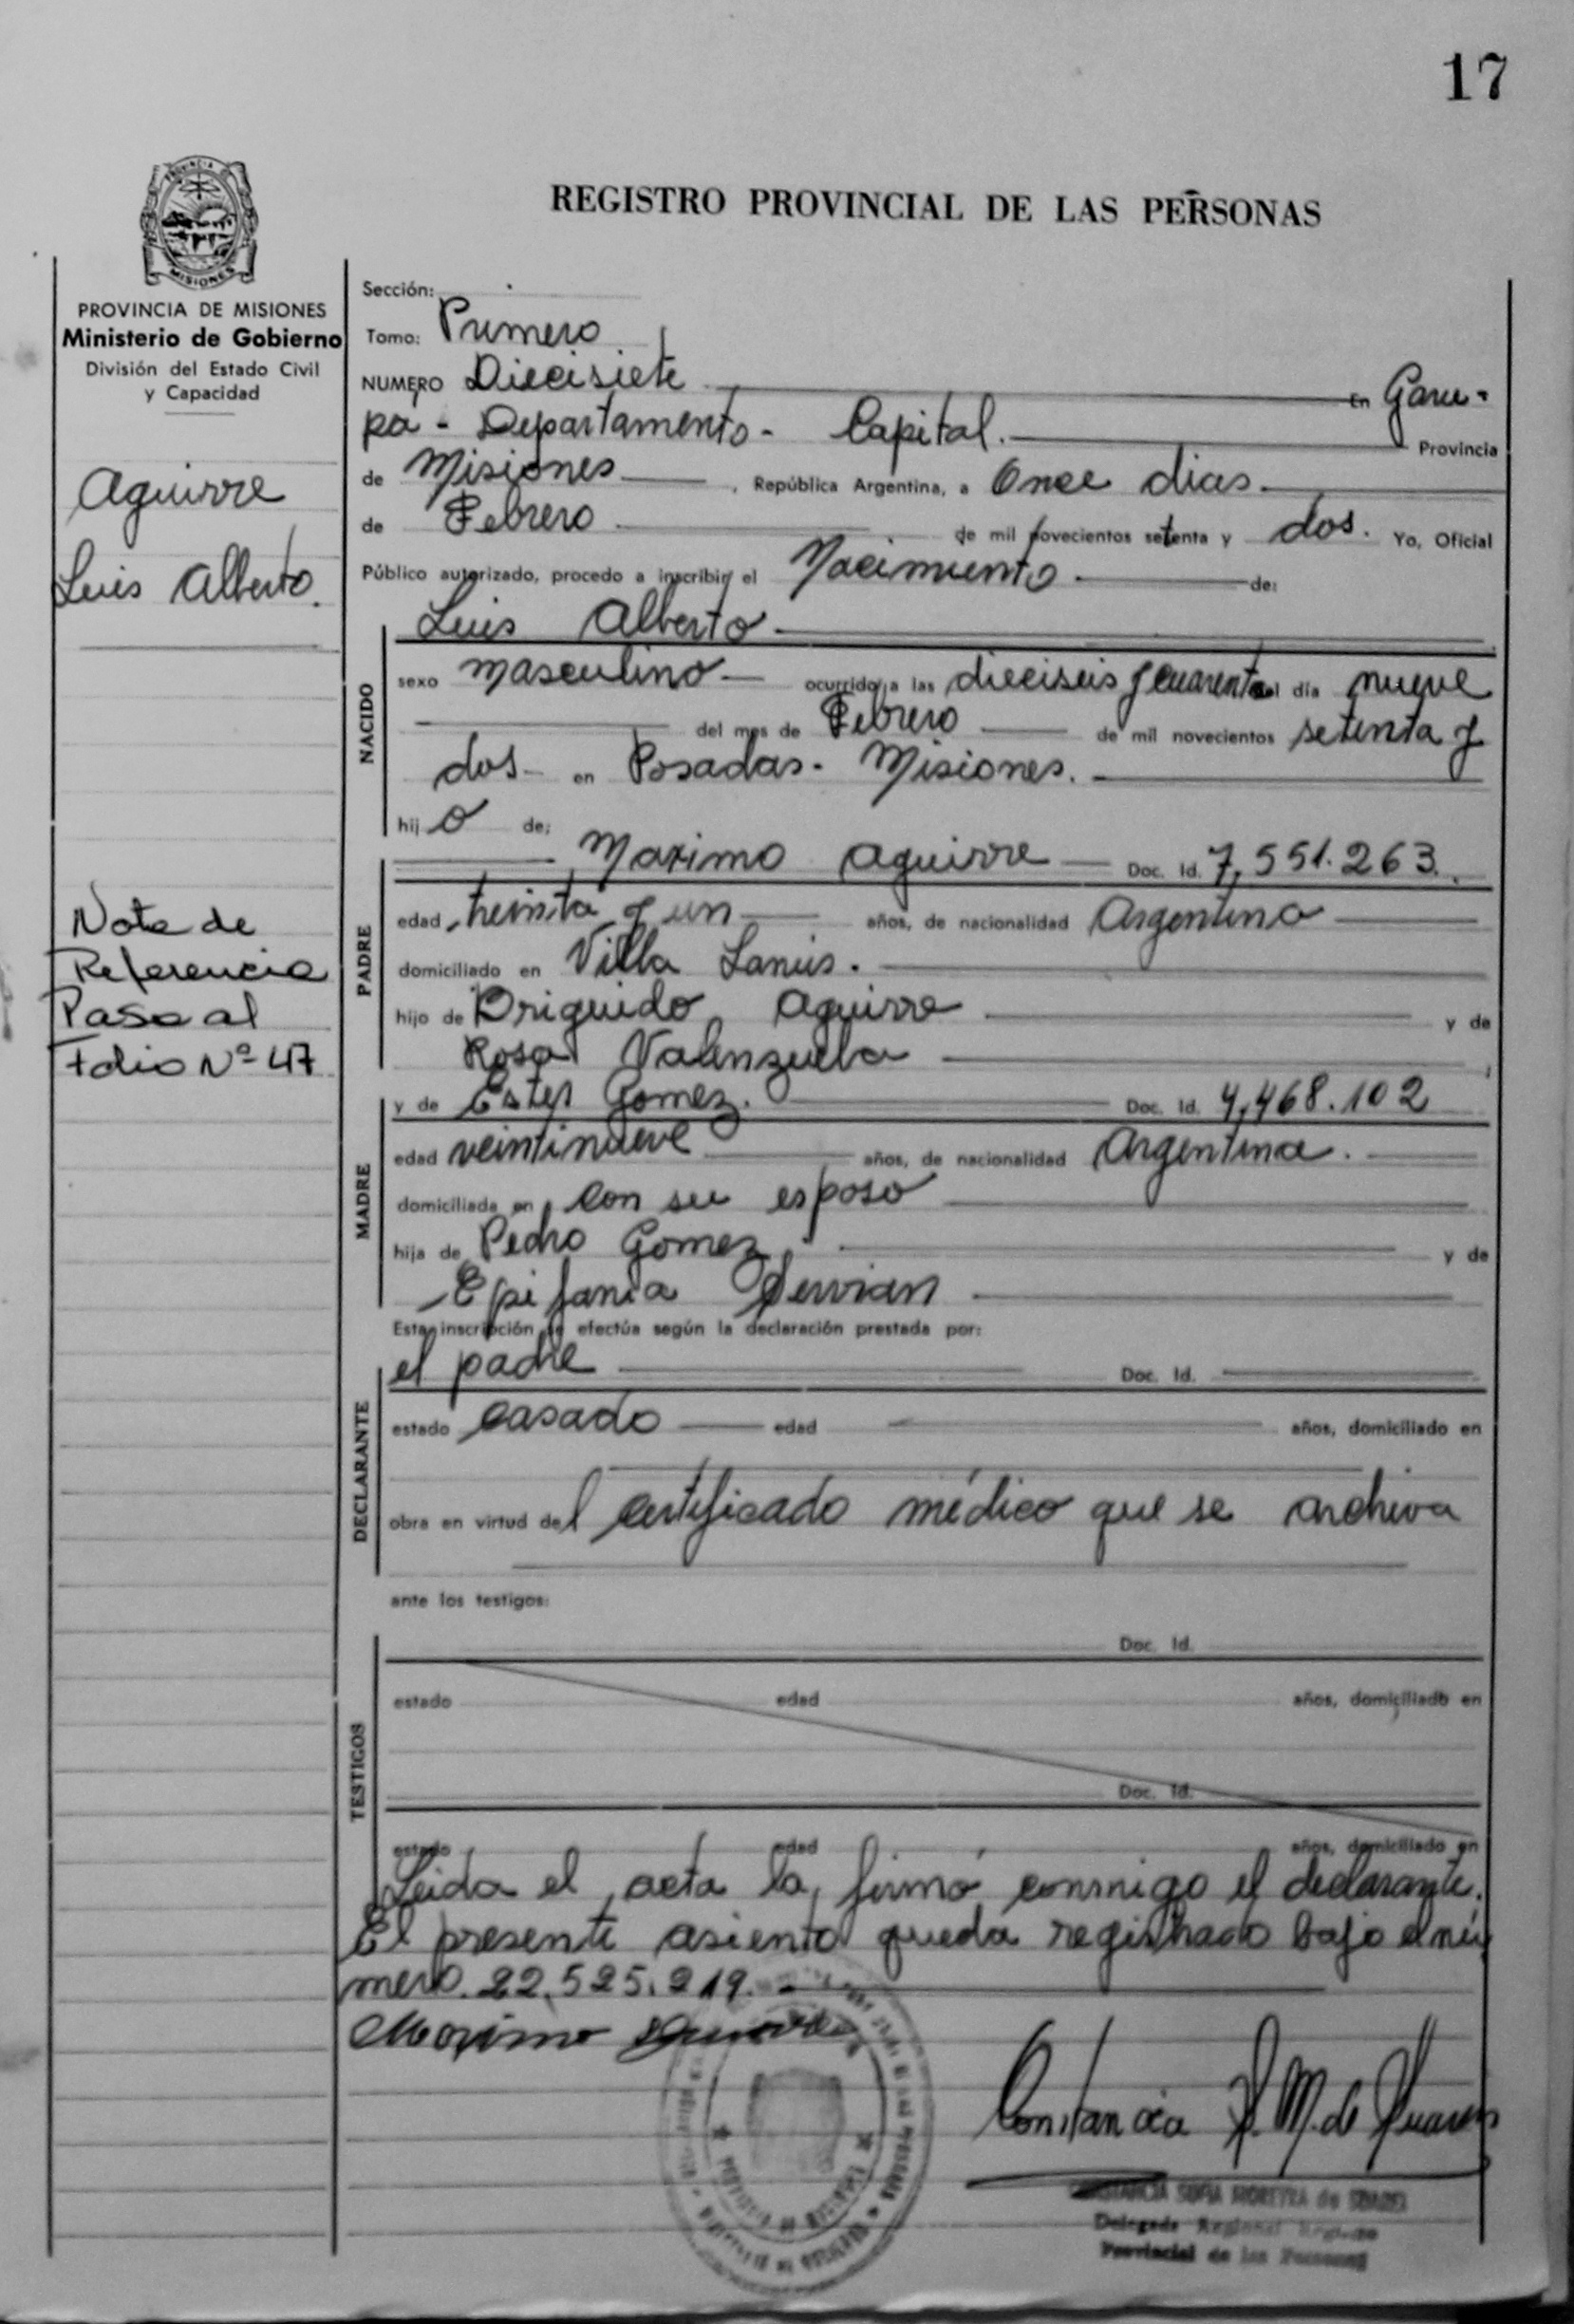 17
REGISTRO PROVINCIAL DE LAS PERSONAS
PROVINCIA
MISIONES
PROVINCIA DE MISIONES
Ministerio de Gobierno
División del Estado Civil
y Capacidad
Aguirre
Luis Alberto.
Nota de
Referencia
Pasa al
Folio Nº 47
Sección:
Tomo: Primero
NUMERO Diecisiete En Garu-
pá - Departamento - Capital. Provincia
de Misiones , República Argentina, a Once dias
de Febrero de mil novecientos setenta y dos. Yo, Oficial
Público autorizado, procedo a inscribir el Nacimiento de:
Luis Alberto
NACIDO
sexo masculino ocurrido a las dieciseis y cuarenta del día nueve
del mes de Febrero de mil novecientos setenta y
dos en Posadas - Misiones.
hij o de:
Maximo Aguirre Doc. Id. 7,551.263.
PADRE
edad treinta y un años, de nacionalidad Argentino
domiciliado en Villa Lanús.
hijo de Briguido Aguirre y de
Rosa Valenzuela
y de Ester Gomez. Doc. Id. 4,468.102
MADRE
edad veintinueve años, de nacionalidad Argentina.
domiciliada en con su esposo
hija de Pedro Gomez y de
Epifania Servian
Esta inscripción se efectúa según la declaración prestada por:
el padre Doc. Id.
DECLARANTE
estado casado edad años, domiciliado en
obra en virtud del certificado médico que se archiva
ante los testigos:
Doc. Id.
TESTIGOS
estado edad años, domiciliado en
Doc. Id.
estado edad años, domiciliado en
Leida el acta la firmó conmigo el declarante.
El presente asiento queda registrado bajo el nú
mero 22.525.219.
Maximo Aguirre
Constancia S. M. de Suarez
CONSTANCIA SOFIA MOREYRA de SUAREZ
Delegada Regional Registro
Provincial de las Personas
PROVINCIA DE MISIONES